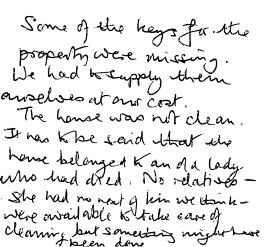 Some of the keys for the
property were missing.
We had to supply them
ourselves at our cost.
The house was not clean.
It has to be said that the
house belonged to an old lady
who had died. No relatives -
she had no next of kin we think -
were available to take care of
cleaning but something might have
been done